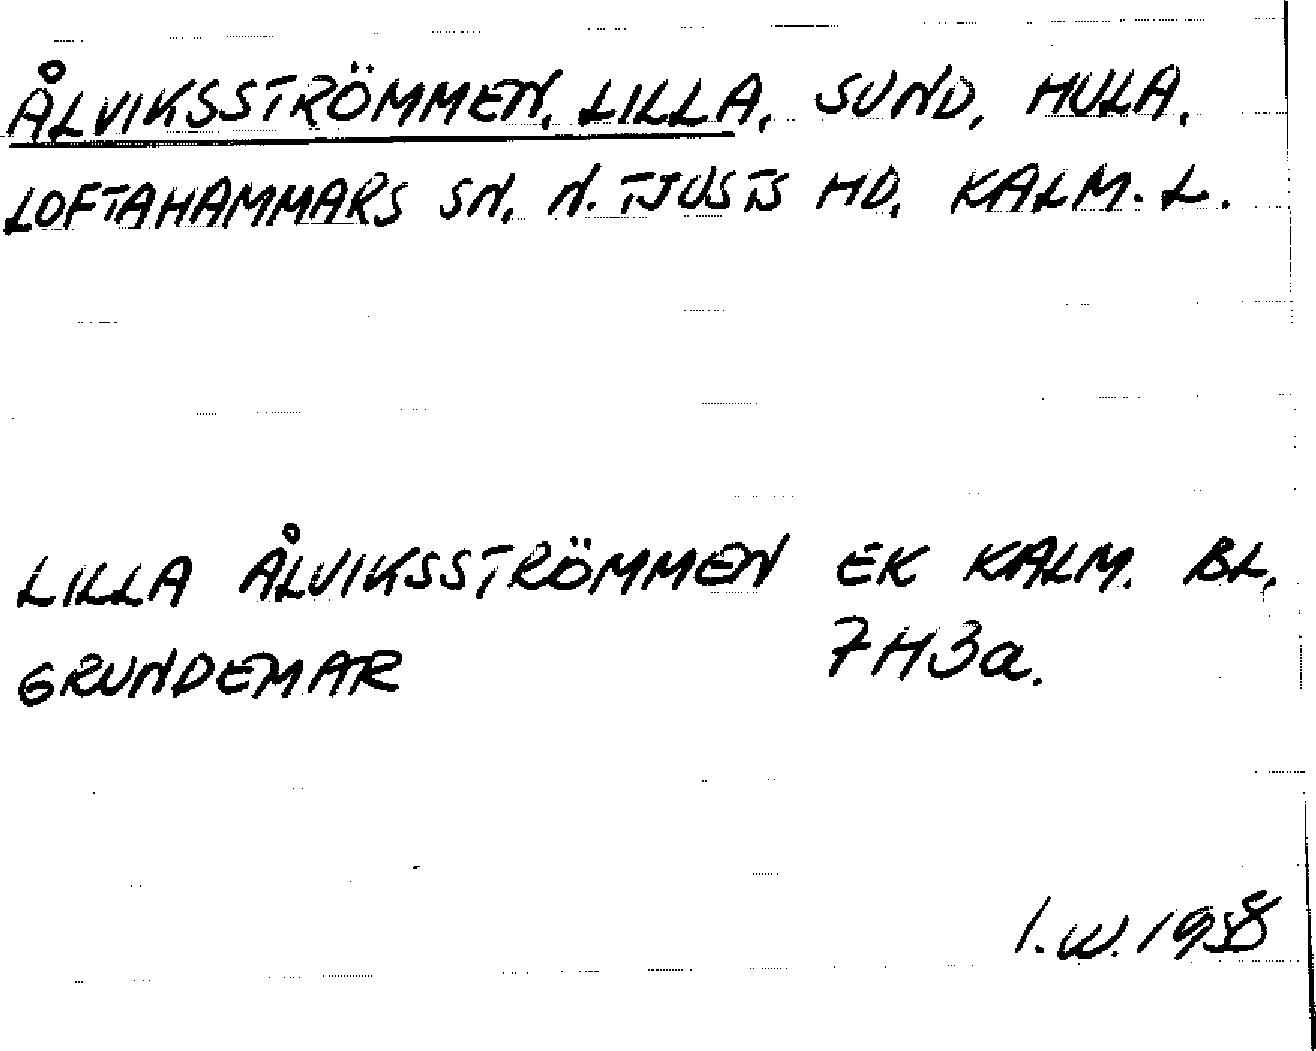 ÅLVIKSSTRÖMMEN, LILLA, SUND, HULA,
LOFTAHAMMARS SN, N. TJUSTS HD, KALM. L.
LILLA ÅLVIKSSTRÖMMEN EK KALM. BL,
GRUNDEMAR 7H3a.
I.W. 1958